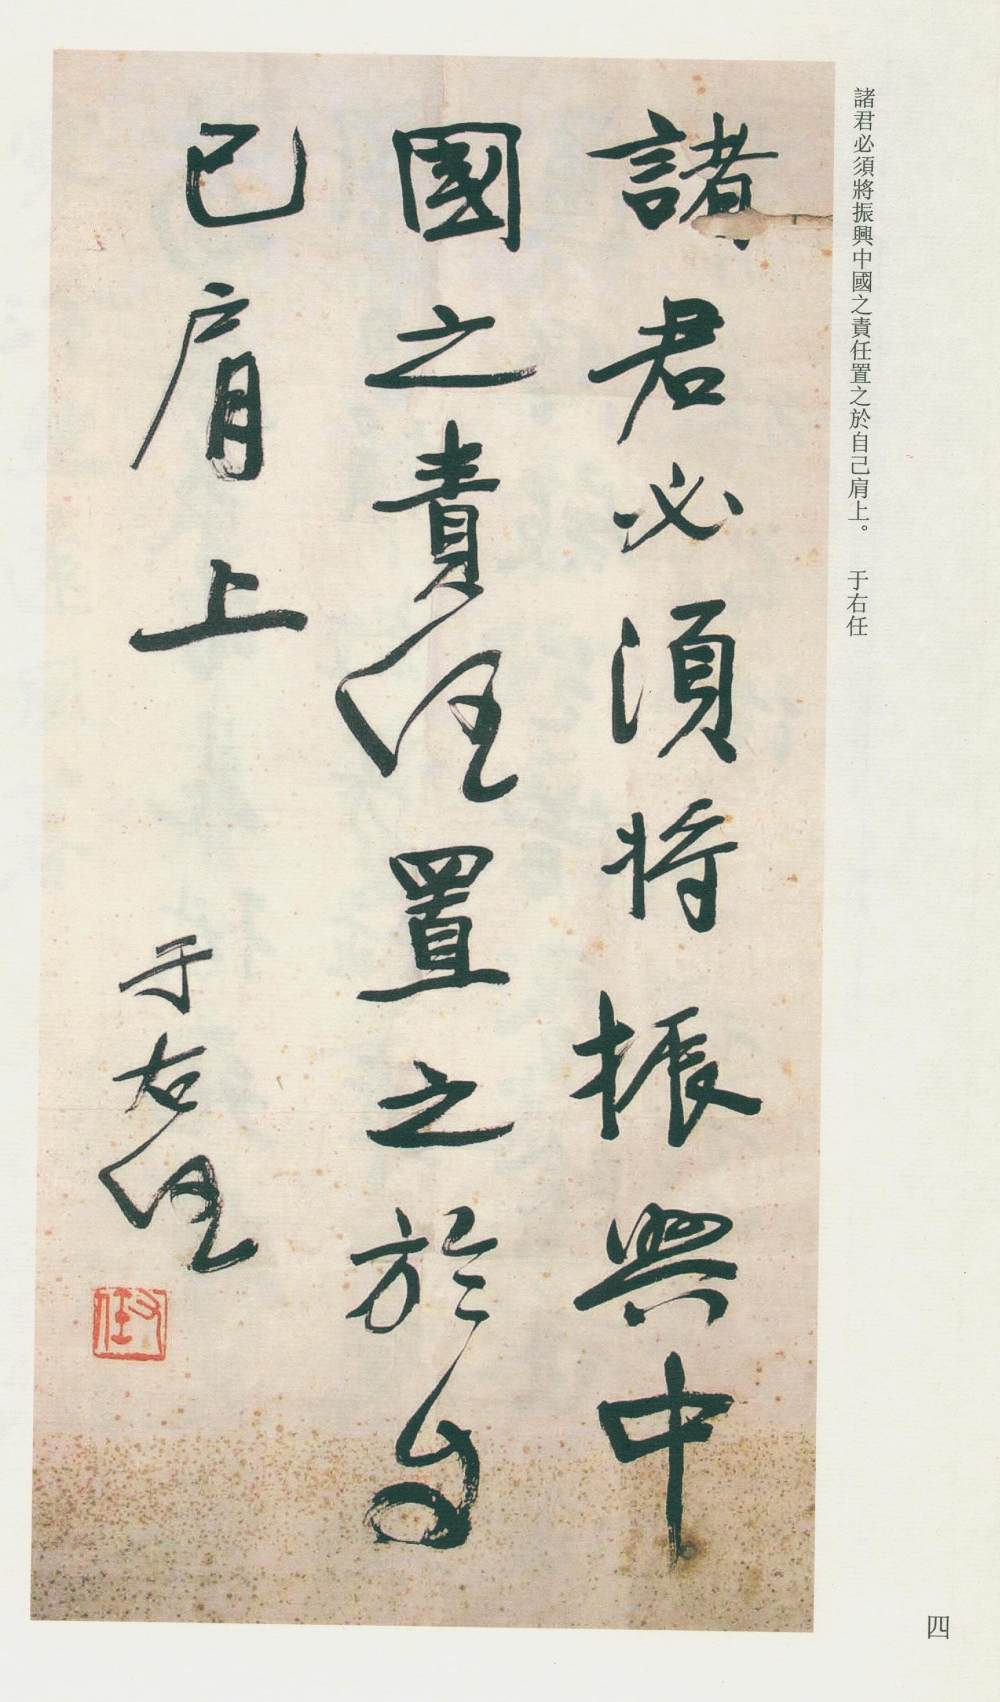 諸君必須將振興中國之責任置之於自己肩上。 于右任
諸君必須将振興中
國之責任置之於自
己肩上
于右任
右任
四